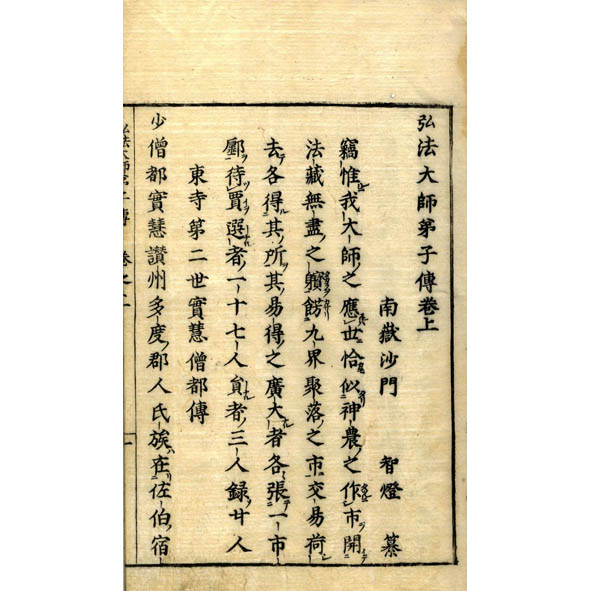 弘法大師弟子傳卷上
南嶽沙門 智燈 纂
竊惟我大師之應世恰似神農之作市開
法藏無盡之鋪九界聚落之市交易荷
去各得其所其易得之廣大者各張一市
鄽待賈選者一十七人負者三人錄廿人
東寺第二世實慧僧都傳
少僧都實慧讚州多度郡人氏族在佐伯宿